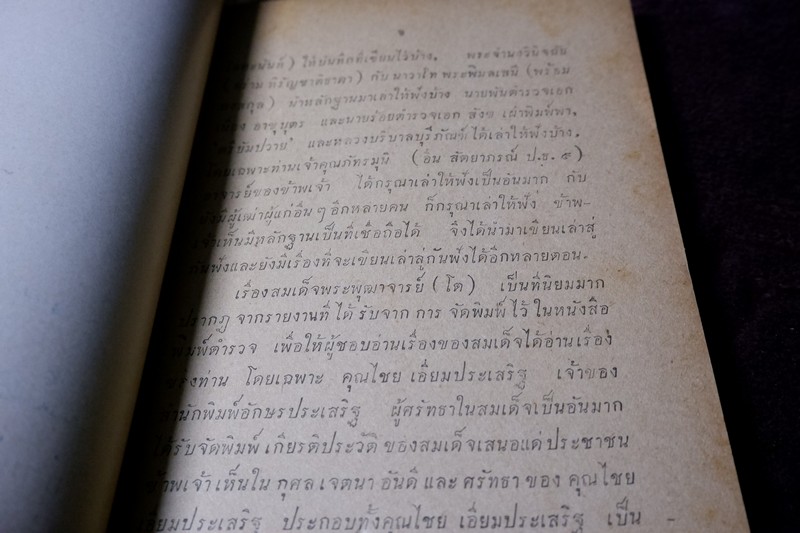 ) ให้บันทึกที่เขียนไว้บ้าง. พระจำนงวินิจฉัย
หิรัญชาติธาดา) กับ นาวาโท พระพิมลเสนี (พร้อม
นำหลักฐานมาเล่าให้ฟังบ้าง นายพันตำรวจเอก
อาชุบุตร และนายร้อยตำรวจเอก สังข เผ่าพิมพ์พา.
และหลวงบริบาลบุรีภัณฑ์ ได้เล่าให้ฟังบ้าง.
โดยเฉพาะท่านเจ้าคุณภัทรมุนี (อิ๋น สัตยาภรณ์ ป.ธ. ๕)
อาจารย์ของข้าพเจ้า ได้กรุณาเล่าให้ฟังเป็นอันมาก กับ
ยังมีผู้เฒ่าผู้แก่อื่นๆ อีกหลายคน ก็กรุณาเล่าให้ฟัง ข้าพ-
เจ้าเห็นมีหลักฐานเป็นที่เชื่อถือได้ จึงได้นำมาเขียนเล่าสู่
กันฟังและยังมีเรื่องที่จะเขียนเล่าสู่กันฟังได้อีกหลายตอน.
เรื่องสมเด็จพระพุฒาจารย์ (โต) เป็นที่นิยมมาก
ปรากฏ จากรายงานที่ ได้ รับจาก การ จัดพิมพ์ ไว้ ในหนังสือ
พิมพ์ตำรวจ เพื่อให้ผู้ชอบอ่านเรื่องของสมเด็จได้อ่าน เรื่อง
ของท่าน โดยเฉพาะ คุณไชย เอี่ยมประเสริฐ เจ้าของ
สำนักพิมพ์อักษรประเสริฐ ผู้ศรัทธาในสมเด็จเป็นอันมาก
ได้รับจัดพิมพ์ เกียรติประวัติ ของสมเด็จเสนอแด่ ประชาชน
ข้าพเจ้า เห็นใน กุศล เจตนา อันดี และ ศรัทธา ของ คุณไชย
เอี่ยมประเสริฐ ประกอบทั้งคุณไชย เอี่ยมประเสริฐ เป็น -